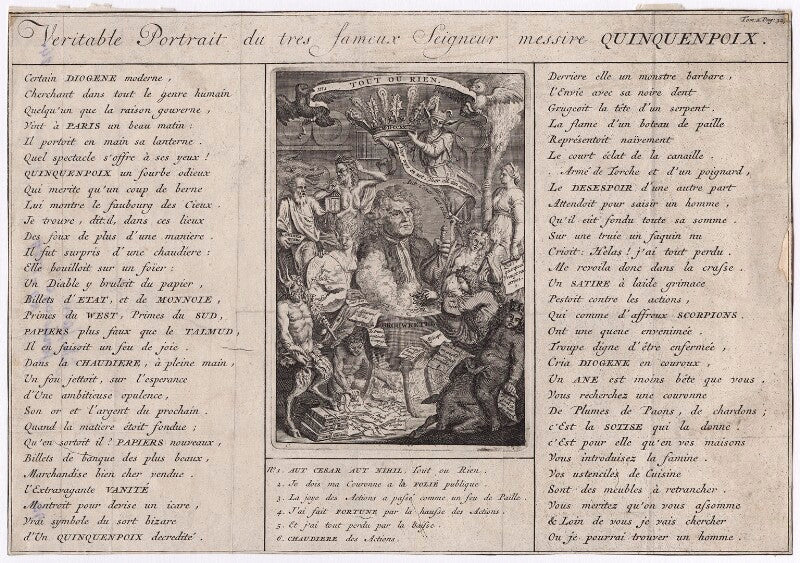 Tom. 2. Pag. 32
Veritable Portrait du tres fameux Seigneur messire QUINQUENPOIX.
Certain DIOGENE moderne,
Cherchant dans tout le genre humain
Quelqu'un que la raison gouverne,
Vint à PARIS un beau matin:
Il portoit en main sa lanterne.
Quel spectacle s'offre à ses yeux!
QUINQUENPOIX un fourbe odieux
Qui merite qu'un coup de berne
Lui montre le faubourg des Cieux.
Je trouve, dit.il, dans ces lieux
Des foux de plus d'une maniere.
Il fut surpris d'une chaudiere:
Elle bouilloit sur un foier:
Un Diable y bruloit du papier,
Billets d'ETAT, et de MONNOIE,
Primes du WEST, Primes du SUD,
PAPIERS plus faux que le TALMUD,
Il en faisoit un feu de joie.
Dans la CHAUDIERE, à pleine main,
Un fou jettoit, sur l'esperance
d'Une ambitieuse opulence,
Son or et l'argent du prochain.
Quand la matiere étoit fondue;
Qu'en sortoit il? PAPIERS nouveaux,
Billets de banque des plus beaux,
Marchandise bien cher vendue.
l'Extravagante VANITÉ
Montroit pour devise un icare,
Vrai symbole du sort bizare
d'Un QUINQUENPOIX decredité.
TOUT OU RIEN.
BOMBARIO
N.º 1. AUT CESAR AUT NIHIL; Tout ou Rien.
2. Je dois ma Couronne a la FOLIE publique.
3. La joye des Actions a passé comme un feu de Paille.
4. J'ai fait FORTUNE par la hausse des Actions.
5. Et j'ai tout perdu par la baisse.
6. CHAUDIERE des Actions.
Derriere elle un monstre barbare,
l'Envie avec sa noire dent
Grugeoit la tête d'un serpent.
La flame d'un boteau de paille
Représentoit naïvement
Le court éclat de la canaille.
Armé de Torche et d'un poignard,
Le DESESPOIR d'une autre part
Attendoit pour saisir un homme,
Qu'il eût fondu toute sa somme.
Sur une truie un faquin nu
Crioit: Hélas! j'ai tout perdu
Me revoila donc dans la crasse.
Un SATIRE à laide grimace
Pestoit contre les actions,
Qui comme d'affreux SCORPIONS.
Ont une queue envenimée.
Troupe digne d'être enfermée,
Cria DIOGENE en couroux,
Un ANE est moins bête que vous.
Vous recherchez une couronne
De Plumes de Paons, de chardons;
c'Est la SOTISE qui la donne!
c'Est pour elle qu'en vos maisons
Vous introduisez la famine.
Vos ustenciles de Cuisine
Sont des meubles à retrancher.
Vous meritez qu'on vous assomme
& Loin de vous je vais chercher
Ou je pourrai trouver un homme.